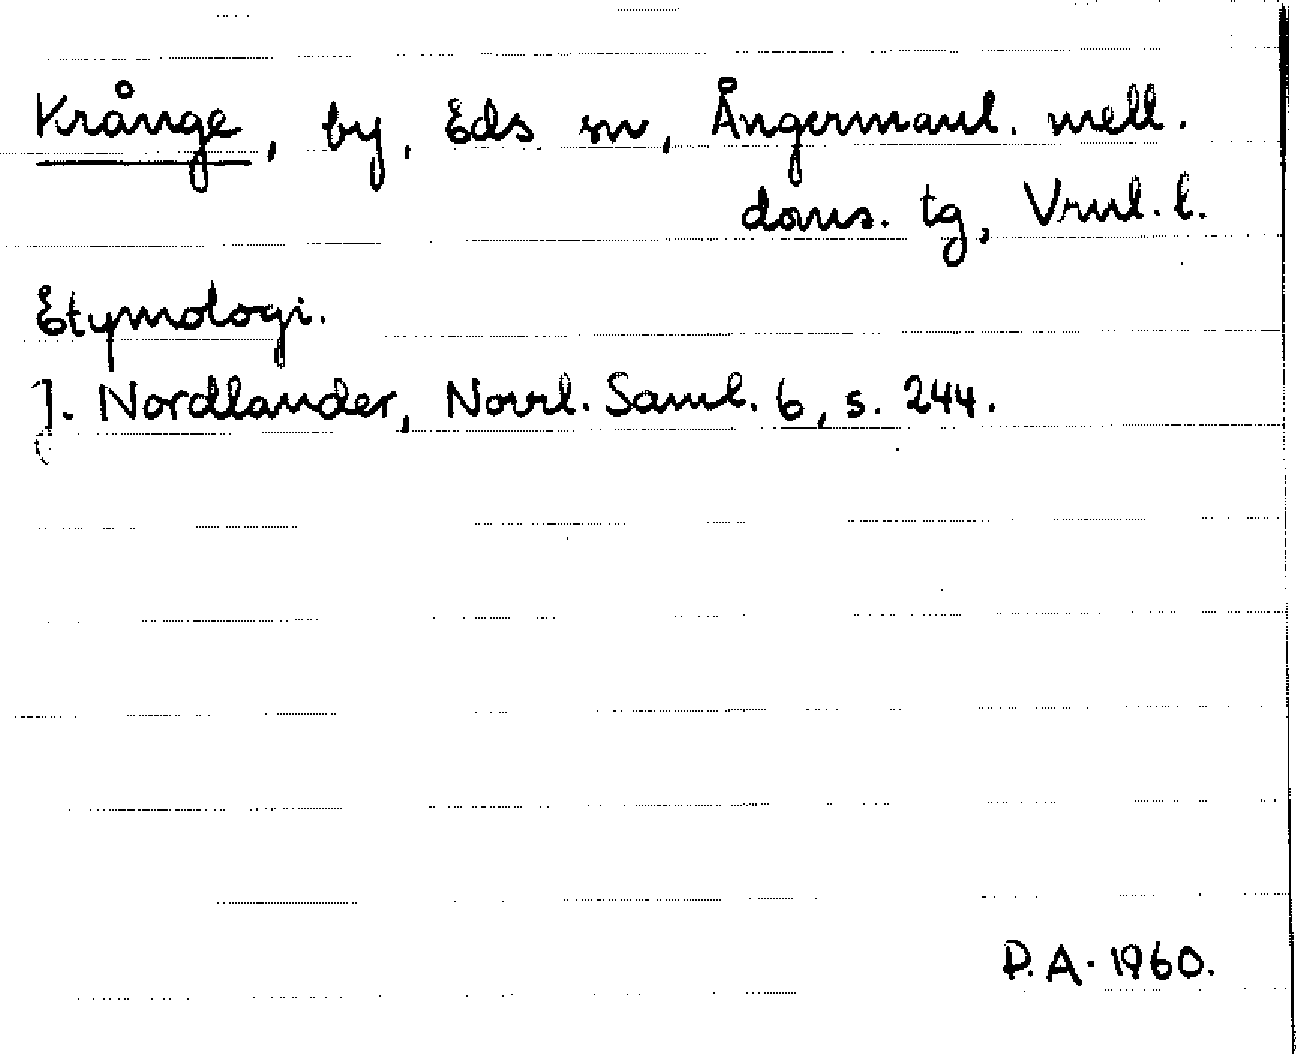 Krånge, by, Eds sn, Ångermanl. mell.
doms. tg, Vrnl. l.
Etymologi.
J. Nordlander, Norrl. Saml. 6, s. 244.
P.A. 1960.